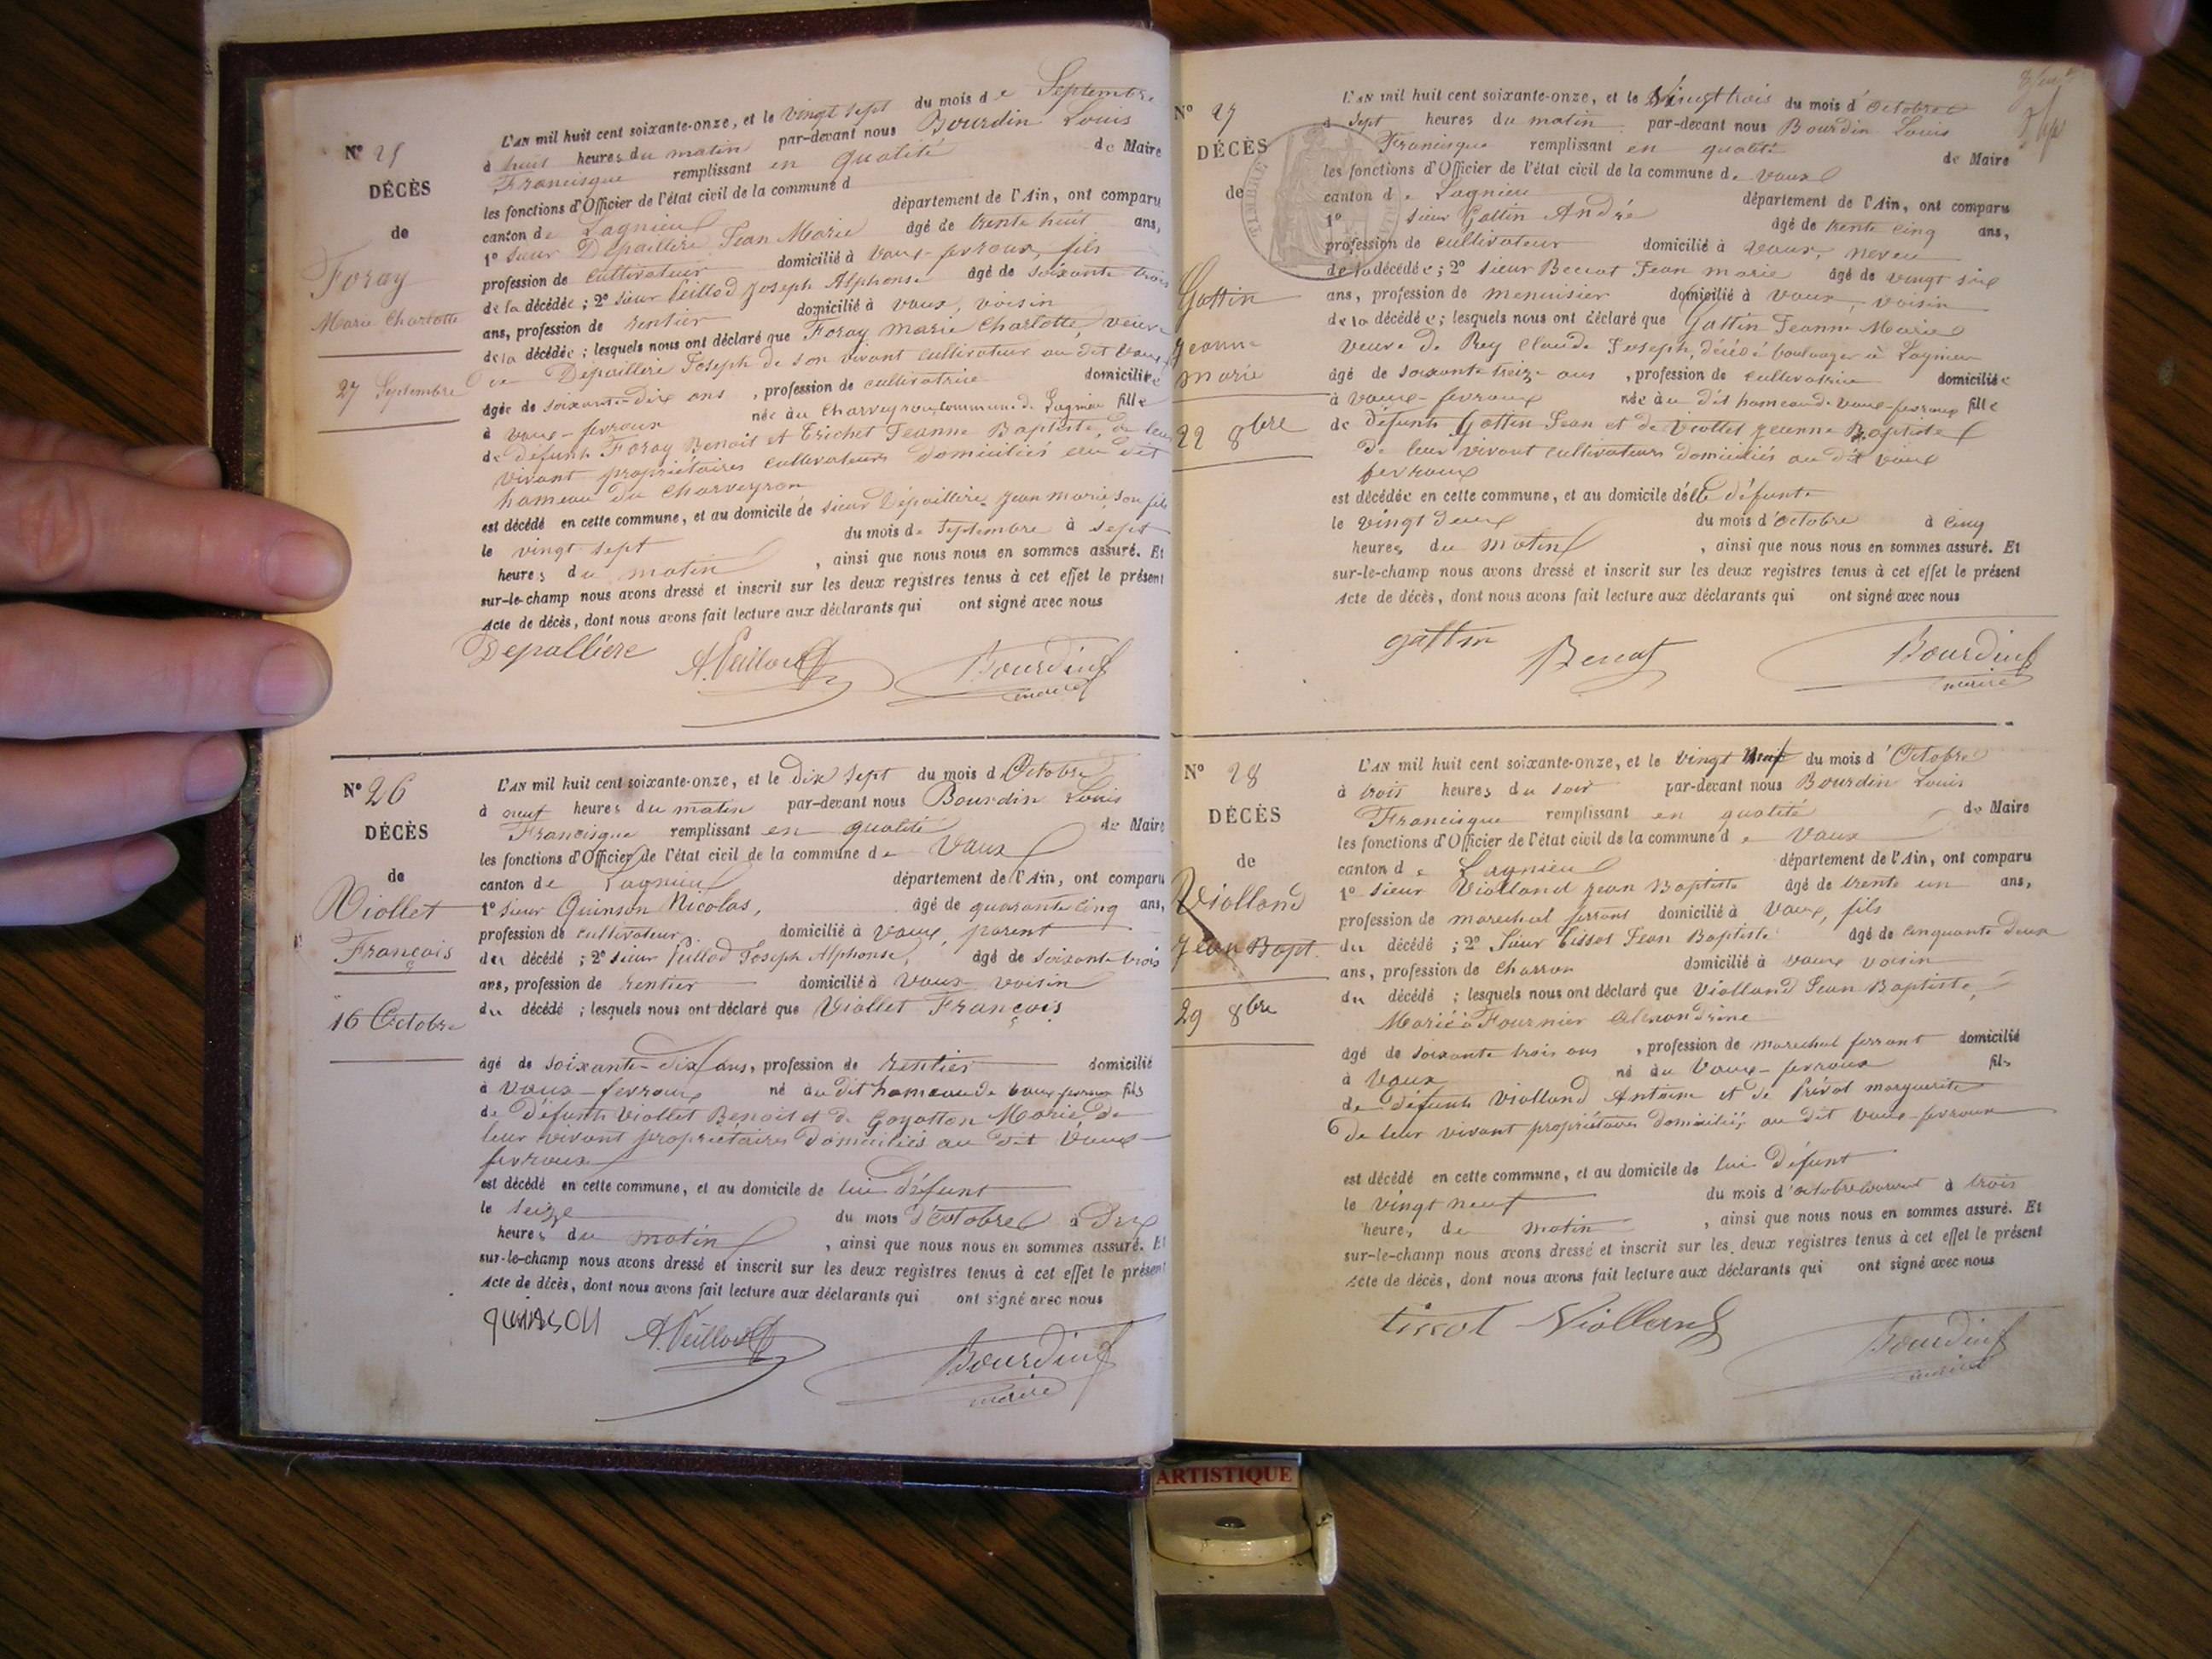 N° 25
DÉCÈS
de
Foray
Marie Charlotte
27 Septembre
L'AN mil huit cent soixante-onze, et le vingt sept du mois de Septembre
à huit heures du matin par-devant nous Bourdin Louis
Francisque remplissant en qualité de Maire
les fonctions d'Officier de l'état civil de la commune d
canton de Lagnieu département de l'Ain, ont comparu
1° sieur Depaillère Jean Marie âgé de trente huit ans,
profession de cultivateur domicilié à Vaux-fevroux, fils
de la décédée ; 2° sieur Peillod Joseph Alphonse âgé de soixante trois
ans, profession de rentier domicilié à Vaux, voisin
de la décédée ; lesquels nous ont déclaré que Foray Marie Charlotte, veuve
de Depaillère Joseph de son vivant cultivateur au dit Vaux
âgée de soixante-dix ans, profession de cultivatrice domiciliée
à Vaux-fevroux née au Charveyron commune de Lagnieu fille
de défunts Foray Benoit et Trichet Jeanne Baptiste, de leur
vivant propriétaires cultivateurs domiciliés au dit
hameau du Charveyron
est décédé en cette commune, et au domicile de sieur Depaillère Jean Marie, son fils
le vingt-sept du mois de Septembre à sept
heures du matin, ainsi que nous nous en sommes assuré. Et
sur-le-champ nous avons dressé et inscrit sur les deux registres tenus à cet effet le présent
Acte de décès, dont nous avons fait lecture aux déclarants qui ont signé avec nous
Depallière A. Peillod Bourdin
maire
N° 26
DÉCÈS
de
Viollet
François
16 Octobre
L'AN mil huit cent soixante-onze, et le Dix sept du mois d'Octobre
à neuf heures du matin par-devant nous Bourdin Louis
Francisque remplissant en qualité de Maire
les fonctions d'Officier de l'état civil de la commune de Vaux
canton de Lagnieu département de l'Ain, ont comparu
1° sieur Quinson Nicolas, âgé de quarante cinq ans,
profession de cultivateur, domicilié à Vaux, parent
du décédé ; 2° sieur Peillod Joseph Alphonse, âgé de soixante trois
ans, profession de rentier domicilié à Vaux voisin
du décédé ; lesquels nous ont déclaré que Viollet François
âgé de soixante-dix ans, profession de Rentier domicilié
à Vaux-fevroux né au dit hameau de Vaux-fevroux fils
de défunts Viollet Benoit et de Goyatton Marie De
leur vivant propriétaires domiciliés au dit Vaux-
fevroux
est décédé en cette commune, et au domicile de lui défunt
le seize du mois d'Octobre à Dix
heures du matin, ainsi que nous nous en sommes assuré. Et
sur-le-champ nous avons dressé et inscrit sur les deux registres tenus à cet effet le présent
Acte de décès, dont nous avons fait lecture aux déclarants qui ont signé avec nous
quinson A. Peillod Bourdin
maire
N° 27
DÉCÈS
de
Gattin
Jeanne
Marie
22 8bre
TIMBRE
L'AN mil huit cent soixante-onze, et le Vingt trois du mois d'Octobre
à sept heures du matin par-devant nous Bourdin Louis
Francisque remplissant en qualité de Maire
les fonctions d'Officier de l'état civil de la commune de Vaux
canton de Lagnieu département de l'Ain, ont comparu
1° sieur Gattin André âgé de trente cinq ans,
profession de cultivateur domicilié à Vaux, neveu
de la décédée ; 2° sieur Benat Jean marie âgé de vingt six
ans, profession de menuisier domicilié à Vaux, voisin
de la décédée ; lesquels nous ont déclaré que Gattin Jeanne Marie
Veuve de Rey Claude Joseph, décédé boulanger à Lagnieu
âgé de soixante treize ans, profession de cultivatrice domiciliée
à Vaux-fevroux née au dit hameau de Vaux-fevroux fille
de défunts Gattin Jean et de Viollet Jeanne Baptiste
De leur vivant cultivateurs domiciliés au dit Vaux
fevroux
est décédée en cette commune, et au domicile d'elle défunte
le vingt deux du mois d'Octobre à cinq
heures du matin, ainsi que nous nous en sommes assuré. Et
sur-le-champ nous avons dressé et inscrit sur les deux registres tenus à cet effet le présent
Acte de décès, dont nous avons fait lecture aux déclarants qui ont signé avec nous
gattin Benat Bourdin
maire
N° 28
DÉCÈS
de
Violland
Jean Bapt.
29 8bre
L'AN mil huit cent soixante-onze, et le vingt neuf du mois d'Octobre
à trois heures du soir par-devant nous Bourdin Louis
Francisque remplissant en qualité de Maire
les fonctions d'Officier de l'état civil de la commune de Vaux
canton de Lagnieu département de l'Ain, ont comparu
1° sieur Violland Jean Baptiste âgé de trente un ans,
profession de marechal ferrant domicilié à Vaux, fils
du décédé ; 2° sieur Tissot Jean Baptiste âgé de cinquante deux
ans, profession de Charron domicilié à Vaux voisin
du décédé ; lesquels nous ont déclaré que Violland Jean Baptiste,
Marié à Fournier Alexandrine
âgé de soixante trois ans, profession de marechal ferrant domicilié
à Vaux né au Vaux-fevroux fils
de défunts Violland Antoine et de Prévot marguerite
De leur vivant propriétaires domiciliés au dit Vaux-fevroux
est décédé en cette commune, et au domicile de lui défunt
le vingt neuf du mois d'octobre courant à trois
heures du matin, ainsi que nous nous en sommes assuré. Et
sur-le-champ nous avons dressé et inscrit sur les deux registres tenus à cet effet le présent
Acte de décès, dont nous avons fait lecture aux déclarants qui ont signé avec nous
tissot Violland Bourdin
maire
ARTISTIQUE